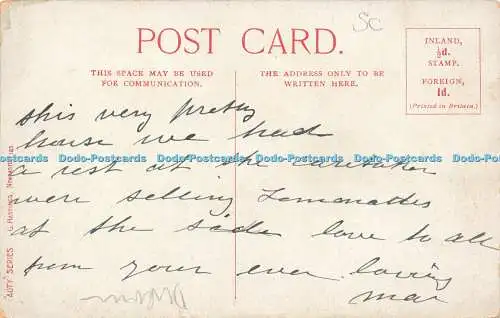 Sc
POST CARD.
THIS SPACE MAY BE USED
FOR COMMUNICATION.
THE ADDRESS ONLY TO BE
WRITTEN HERE.
INLAND,
½d.
STAMP.
FOREIGN,
1d.
(Printed in Britain.)
this very pretty
house we had
a rest at the caretaker
were selling Lemonades
at the side love to all
from your ever loving
Mar
Dodo-Postcards Dodo-Postcards Dodo-Postcards Dodo-Postcards Dodo-Postcards
AUTY SERIES G. HASTINGS,